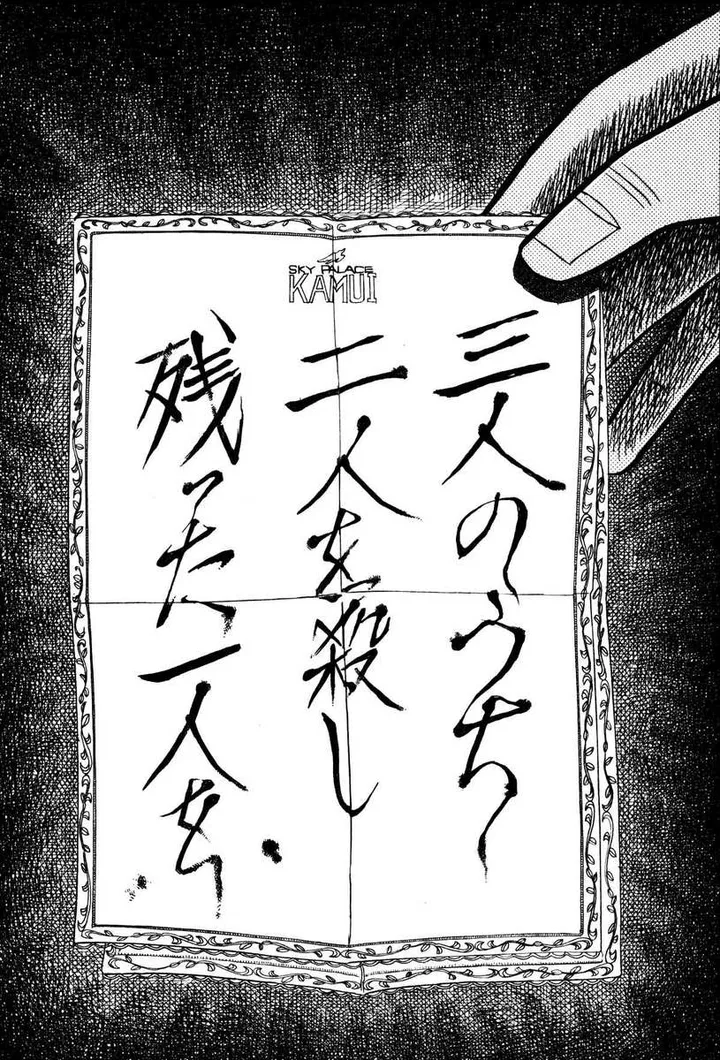 SKY PALACE
KAMUI
三人のうち
二人を殺し
残った一人を